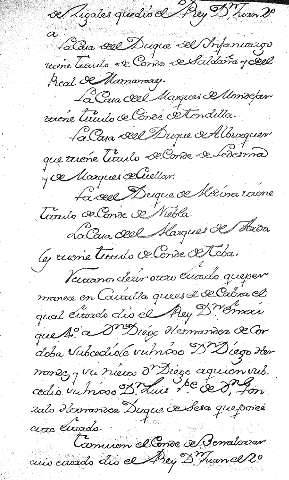 de Rizales que dio el Rey Dn Juan 2º
a
La Casa del Duque del Infantazgo
tiene titulo de Conde de Saldaña y del
Real de Manzanares
La Casa del Marques de Mondejar
tiene titulo de Conde de Tendilla.
La Casa del Duque de Alburquer
que tiene titulo de Conde de Ledesma
y de Marques de Cuellar.
La del Duque de Medina tiene
titulo de Conde de Niebla
La Casa del Marques de
tiene titulo de Conde de
Veramos decir otro estado que per
manece en Castilla que es el de Cabra el
qual estado dio el Rey Dn Enrri
que 4º a Dn Diego Hernandez de Cor
doba subcediolo su hijo Dn Diego Her
nandez, y su nieto Dn Diego a quien sub
cedio su hijo Dn Luis Pe de Dn Gon
zalo Hernandez Duque de Sesa que posee
este estado.
Tambien el Conde de Benalcazar
este estado dio el Rey Dn Juan el 2º